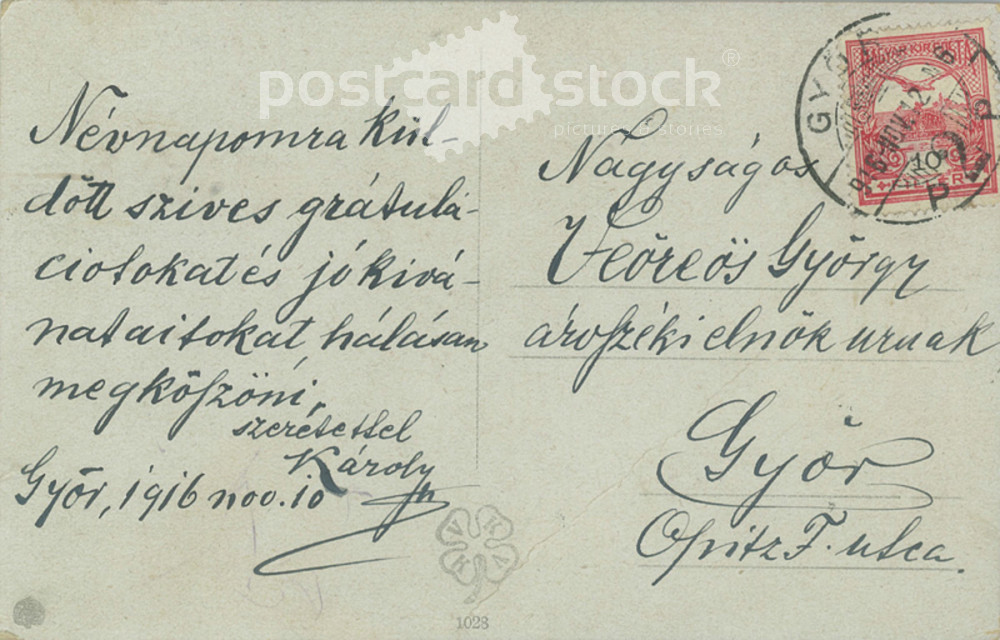 postcard stock®
pictures & stories
Névnapomra kül-
dött szives grátulá-
ciotokat és jó kivá-
nataitokat hálásan
megköszöni,
szeretettel
Károly
Győr, 1916 nov. 10
Nagyságos
Veöreös György
árvaszéki elnök urnak
Győr
Opitz F. utca.
MAGYAR KIR. POSTA
10
FILLÉR
GYŐR
916 NOV. 12
P P
V K V K
1028